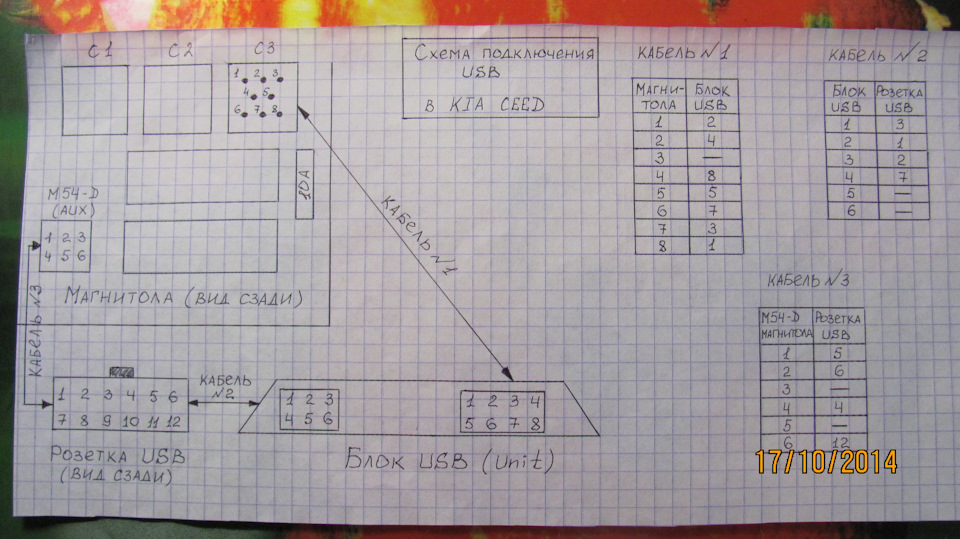 С1 С2 С3
1 2 3
4 5
6 7 8
Схема подключения
USB
в KIA CEED
10А
М54-D
(AUX)
1 2 3
4 5 6
Магнитола (вид сзади)
КАБЕЛЬ №1
КАБЕЛЬ №3
1 2 3 4 5 6
7 8 9 10 11 12
Розетка USB
(вид сзади)
КАБЕЛЬ
№2
1 2 3
4 5 6
1 2 3 4
5 6 7 8
Блок USB (Unit)
КАБЕЛЬ №1
МАГНИ-ТОЛА БЛОК USB
1 2
2 4
3 —
4 8
5 5
6 7
7 3
8 1
КАБЕЛЬ №2
БЛОК USB РОЗЕТКА USB
1 3
2 1
3 2
4 7
5 —
6 —
КАБЕЛЬ №3
М54-D МАГНИТОЛА РОЗЕТКА USB
1 5
2 6
3 —
4 4
5 —
6 12
17/10/2014